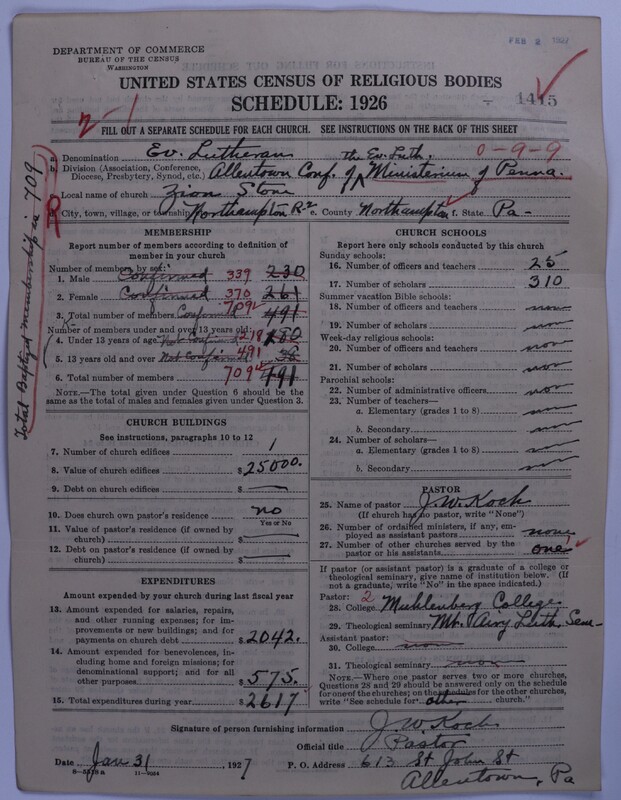 FEB 2 1927
DEPARTMENT OF COMMERCE
BUREAU OF THE CENSUS
WASHINGTON
UNITED STATES CENSUS OF RELIGIOUS BODIES
SCHEDULE: 1926
1415
2-1
FILL OUT A SEPARATE SCHEDULE FOR EACH CHURCH. SEE INSTRUCTIONS ON THE BACK OF THIS SHEET
0-9-9
a. Denomination Ev. Lutheran
b. Division (Association, Conference, Diocese, Presbytery, Synod, etc.) Allentown Conf. of the Ev. Luth. Ministerium of Penna.
Local name of church Zion Stone
City, town, village, or township Northampton R-2 e. County Northampton f. State Pa-
Total Baptized membership in 709
MEMBERSHIP
Report number of members according to definition of
member in your church
Number of members by sex:
1. Male Confirmed 339 230
2. Female Confirmed 370 261
3. Total number of members Confirmed 709 491
Number of members under and over 13 years old:
4. Under 13 years of age Not Confirmed 218 180
5. 13 years old and over Not Confirmed 491 38
6. Total number of members 709 491
NOTE.—The total given under Question 6 should be the
same as the total of males and females given under Question 3.
CHURCH BUILDINGS
See instructions, paragraphs 10 to 12
7. Number of church edifices 1
8. Value of church edifices $25000.
9. Debt on church edifices $
10. Does church own pastor's residence no
Yes or No
11. Value of pastor's residence (if owned by
church) $
12. Debt on pastor's residence (if owned by
church) $
EXPENDITURES
Amount expended by your church during last fiscal year
13. Amount expended for salaries, repairs,
and other running expenses; for im-
provements or new buildings; and for
payments on church debt $2042.
14. Amount expended for benevolences, in-
cluding home and foreign missions; for
denominational support; and for all
other purposes $575.
15. Total expenditures during year $2617
CHURCH SCHOOLS
Report here only schools conducted by this church
Sunday schools:
16. Number of officers and teachers 25
17. Number of scholars 310
Summer vacation Bible schools:
18. Number of officers and teachers non
19. Number of scholars non
Week-day religious schools:
20. Number of officers and teachers non
21. Number of scholars non
Parochial schools:
22. Number of administrative officers non
23. Number of teachers—
a. Elementary (grades 1 to 8) non
b. Secondary non
24. Number of scholars—
a. Elementary (grades 1 to 8) non
b. Secondary non
PASTOR
25. Name of pastor J. W. Koch
(If church has no pastor, write "None")
26. Number of ordained ministers, if any, em-
ployed as assistant pastors none
27. Number of other churches served by the
pastor or his assistants one
1
If pastor (or assistant pastor) is a graduate of a college or
theological seminary, give name of institution below. (If
not a graduate, write "No" in the space indicated.)
Pastor: 2
28. College Muhlenberg College
29. Theological seminary Mt. Airy Luth. Sem-
Assistant pastor:
30. College non
31. Theological seminary non
NOTE.—Where one pastor serves two or more churches,
Questions 28 and 29 should be answered only on the schedule
for one of the churches; on the schedules for the other churches,
write "See schedule for other church."
Signature of person furnishing information J. W. Koch
Official title Pastor
Date Jan 31 1927 P. O. Address 613 St John St
8-5518 a 11-7064
Allentown, Pa